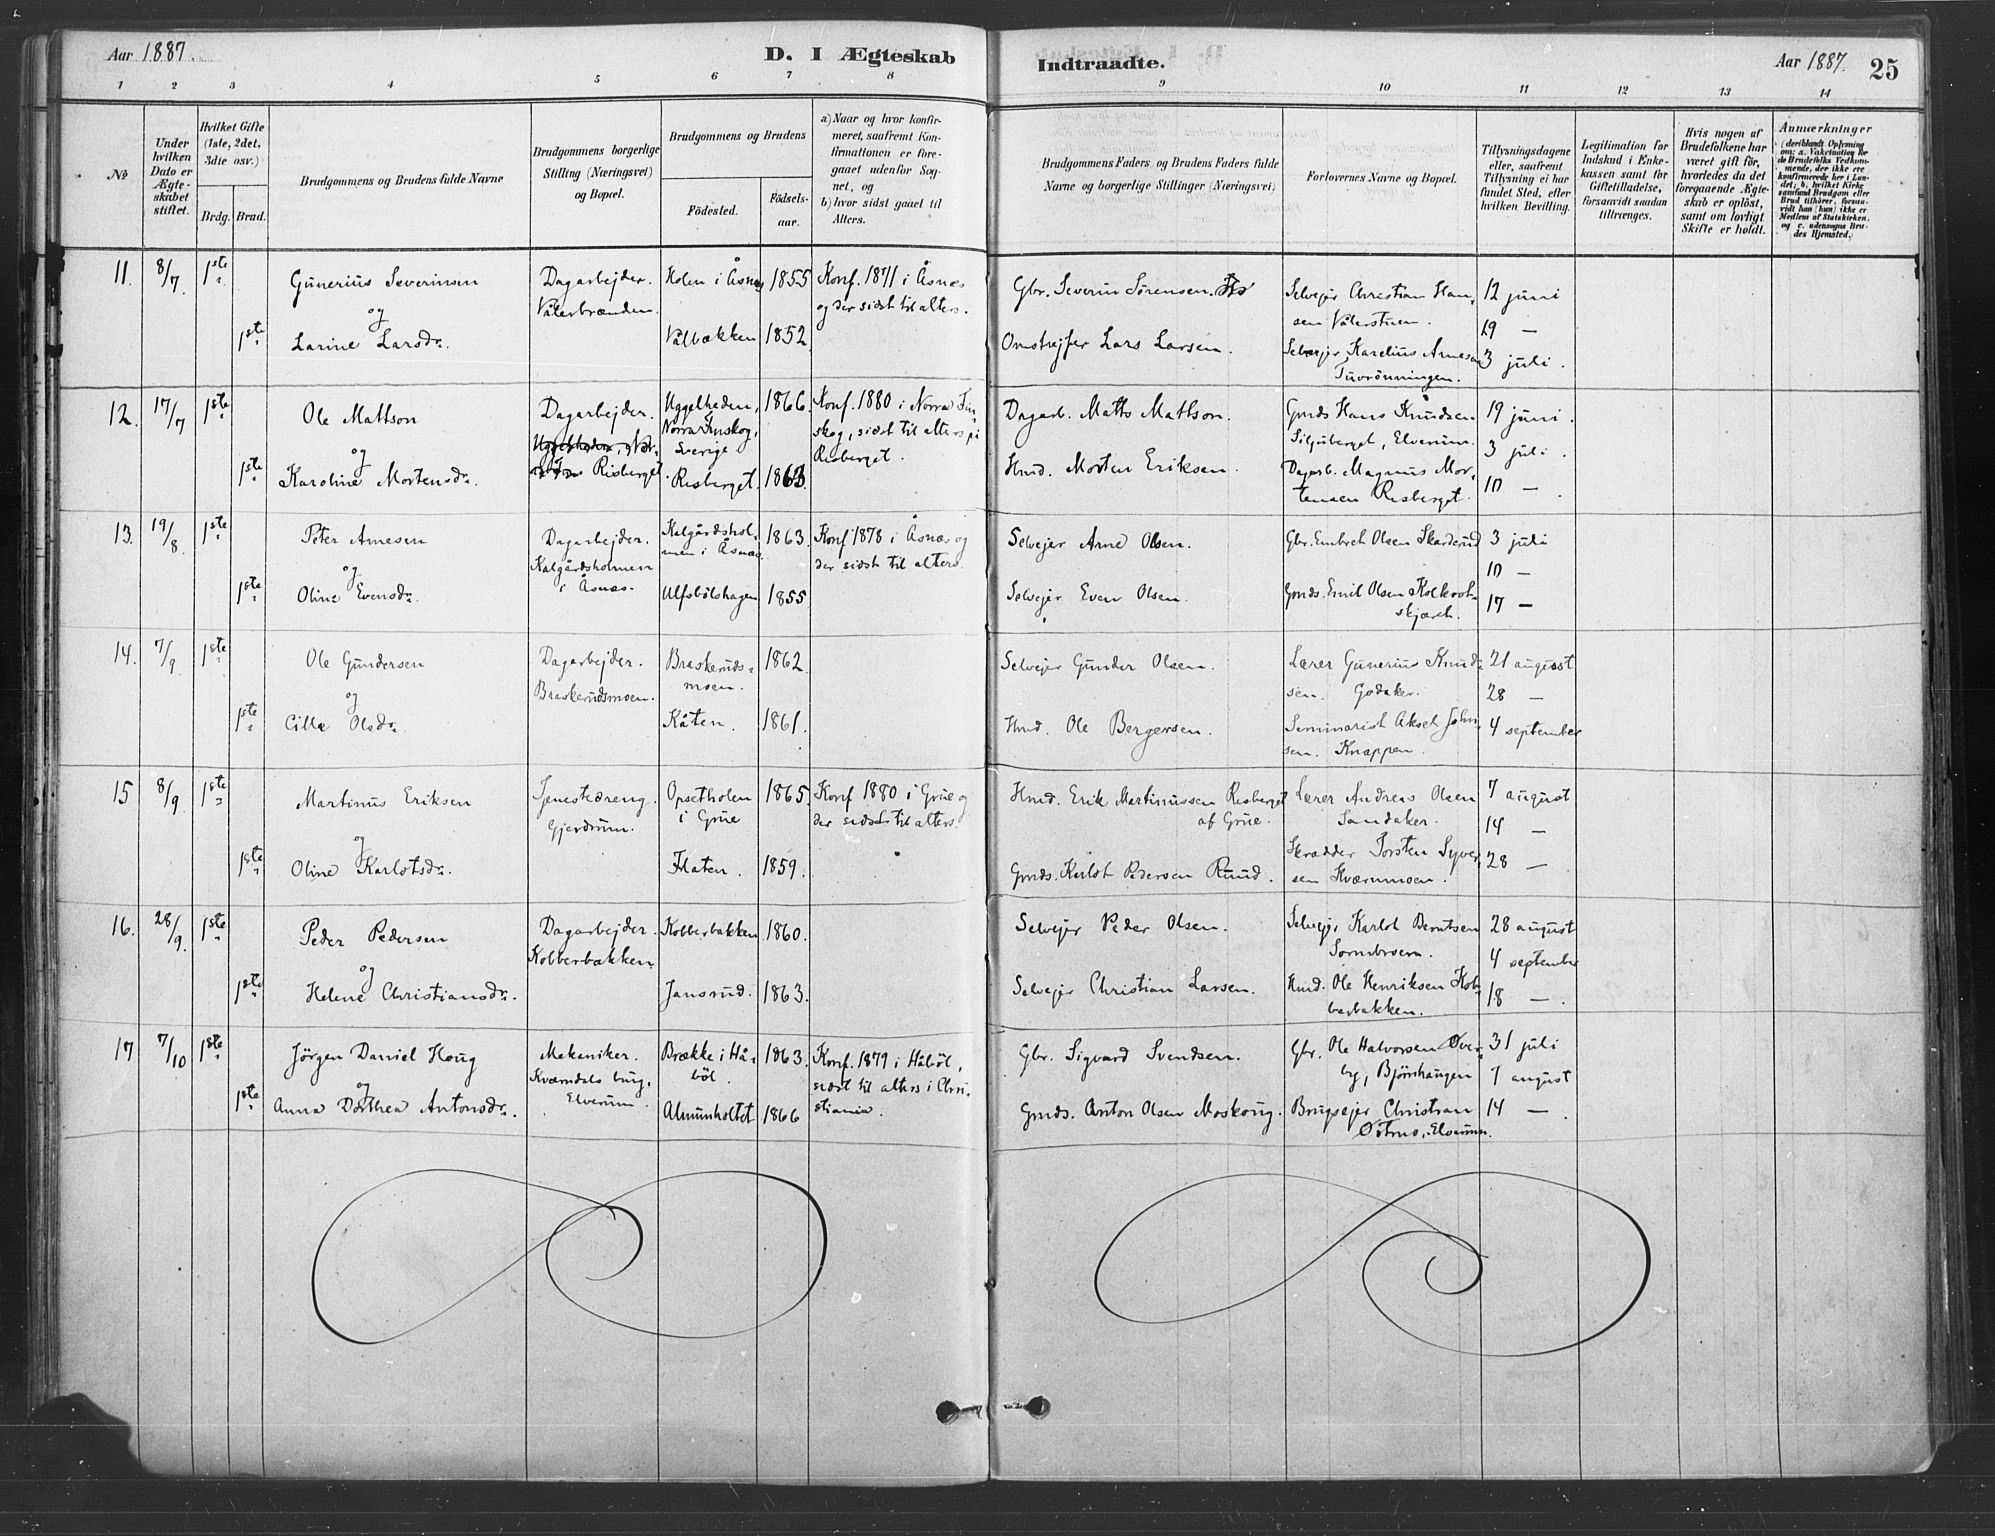 Aar 1887.
D. I Ægteskab
Indtraadte.
Aar 1887.
25
1 2 3 4 5 6 7 8
9 10 11 12 13 14
No
Under hvilken Dato er Ægteskabet stiftet.
Hvilket Gifte (1ste, 2det, 3die osv.)
Brdg. Brud.
Brudgommens og Brudens fulde Navne
Brudgommens borgerlige Stilling (Næringsvei) og Bopæl.
Brudgommens og Brudens
Fødested.
Fødselsaar.
a) Naar og hvor konfirmeret, saafremt Konfirmationen er foregaaet udenfor Sognet, og
b) hvor sidst gaaet til Alters.
Brudgommens Faders og Brudens Faders fulde Navne og borgerlige Stillinger (Næringsvei)
Forlovernes Navne og Bopæl.
Tillysningsdagene eller, saafremt Tillysning ei har fundet Sted, efter hvilken Bevilling.
Legitimation for Indskud i Enkekassen samt for Giftetilladelse, forsaavidt saadan tiltrænges.
Hvis nogen af Brudefolkene har været gift før, hvorledes da det foregaaende Ægteskab er opløst, samt om lovligt Skifte er holdt.
Anmærkninger
(deriblandt Oplysning om: a. Vakcination for de Brudefolks Vedkommende, der ikke ere konfirmerede her i Landet; b. hvilket Kirkesamfund Brudgom eller Brud tilhører, forsaavidt han (hun) ikke er Medlem af Statskirken, og c. udensogns Brudes Hjemsted.)
11. 8/7 1ste
Gunerius Severinsen
og
1ste Larine Larsdr.
Dagarbejder.
Vålerbrænden.
Holen i Åsnæs 1855
Vålbækken 1852.
Konf. 1871 i Åsnæs
og der sidst til alters.
Gbr. Severin Sørensen.
Omstrejfer Lars Larsen.
Selvejer Christian Hansen Vålerstuen.
Selvejer Karelius Arnesen
Tuvrönningen.
12 juni
19 —
3 juli.
12. 17/7 1ste
Ole Mattson
og
1ste Karoline Mortensdr.
Dagarbejder.
Risberget
Uggelheden, 1866.
Norra Finskog,
Sverige.
Risberget. 1863.
Konf. 1880 i Norra Finskog, sidst til alters på
Risberget.
Dagarb. Matts Mattson.
Hmd. Morten Eriksen.
Gmds Hans Knudsen
Siljuberget, Elverum.
Dagarb. Magnus Mortensen Risberget.
19 juni.
3 juli.
10 —.
13. 19/8. 1ste
Peter Arnesen
og
1ste Oline Evensdr.
Dagarbejder.
Kalgårdsholmen
i Åsnæs.
Kalgårdsholmen i Åsnæs. 1863.
Ulfsbølshagen 1855
Konf 1878 i Åsnæs og
der sidst til alters.
Selvejer Arne Olsen.
Selvejer Even Olsen.
Gbr. Embret Olsen Skarderud
Gmds. Emil Olsen
3 juli
10 —
17 —
14. 7/9 1ste
Ole Gundersen
og
1ste Cille Olsdr.
Dagarbejder.
Braskerudsmoen.
Braskerudsmoen. 1862
Kåten. 1861.
Selvejer Gunder Olsen.
Hmd. Ole Bergersen.
Lærer Gunerius Knudsen. Godaker.
Seminarist Aksel Johnsen. Knappen.
21 august
28 —
4 september
15 8/9. 1ste
Martinus Eriksen
og
1ste Oline Karlotsdr.
Tjenestedreng.
Gjerdrum.
Opsetholen 1865.
i Grue
Flaten. 1859.
Konf 1880 i Grue og
der sidst til alters.
Hmd. Erik Martinussen Risberget
af Grue.
Gmds. Karlot Pedersen Ruud.
Lærer Andreas Olsen
Sandaker.
Skrædder Torsten Syversen Kværnmoen.
7 august
14 —
28 —
16. 28/9. 1ste
Peder Pedersen
og
1ste Helene Christiansdr.
Dagarbejder.
Kobberbakken.
Kobberbakken 1860.
Jansrud. 1863.
Selvejer Peder Olsen.
Selvejer Christian Larsen.
Selvejer Karlot Berntsen
Hmd. Ole Henriksen Kobberbakken.
28 august
4 september
18 —.
17 7/10 1ste
Jörgen Daniel Houg
og
1ste Anna Dorthea Antonsdr.
Mekaniker.
Kværndals brug,
Elverum.
Brække i Håböl. 1863.
Almunholtet 1866
Konf. 1879 i Håböl,
sidst til alters i Christiania.
Gbr. Sigvard Svendsen.
Gmds. Anton Olsen Moskoug.
Gbr. Ole Halvorsen Øverby, Björnhaugen
Brugsejer Christian
Östmo, Elverum.
31 juli
7 august
14 —.